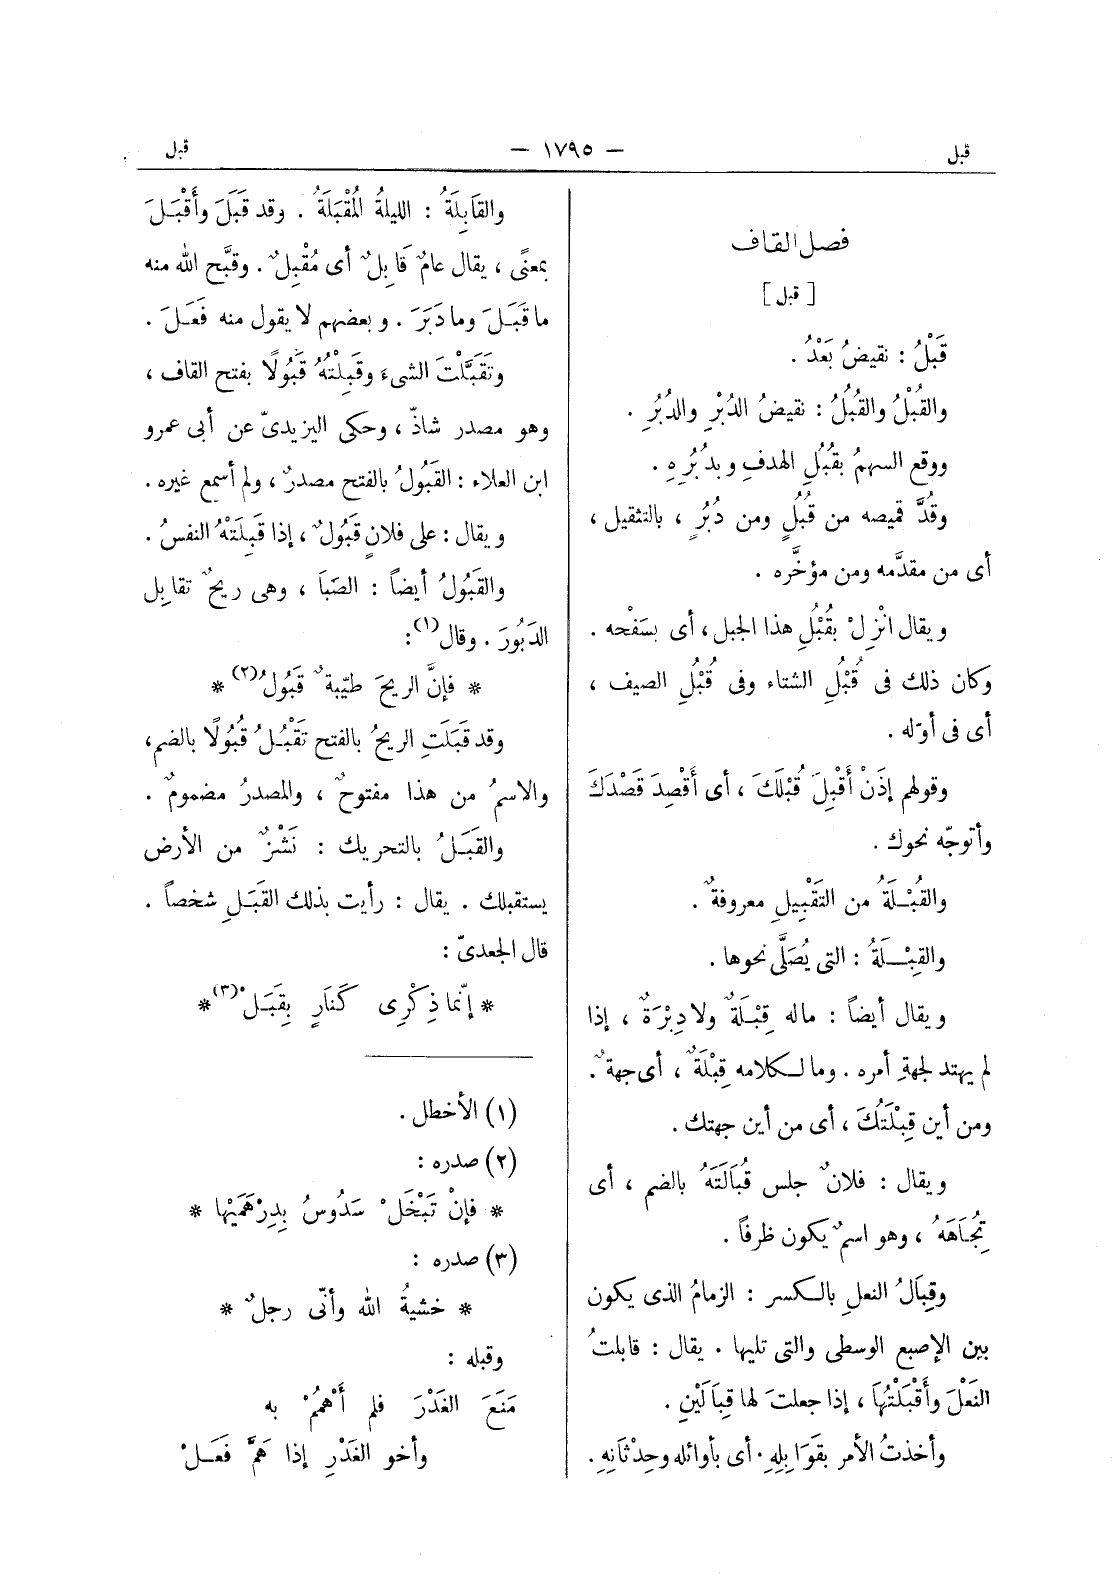 قبل — ١٧٩٥ — قبل
فصل القاف
[ قبل ]
قَبْلُ : نقيضُ بَعْدُ .
والقُبْلُ والقُبُلُ : نقيضُ الدُبْرِ والدُبُرِ .
ووقع السهمُ بقُبُلِ الهدفِ وبدُبُرِهِ .
وقُدَّ قميصه من قُبُلٍ ومن دُبُرٍ ، بالتثقيل ،
أى من مقدَّمه ومن مؤخَّره .
ويقال انْزِلْ بقُبْلِ هذا الجبل ، أى بسَفْحه .
وكان ذلك فى قُبْلِ الشتاء وفى قُبْلِ الصيف ،
أى فى أوّله .
وقولهم إذَنْ أُقْبِلَ قُبْلَكَ ، أى أَقْصِدَ قَصْدَكَ
وأتوجّه نحوك .
والقُبْلَةُ من التَقْبِيلِ معروفةٌ .
والقِبْلَةُ : التى يُصَلَّى نحوها .
ويقال أيضاً : ماله قِبْلَةٌ ولا دِبْرَةٌ ، إذا
لم يهتد لجهةِ أمره . وما لكلامه قِبْلَةٌ ، أى جهةٌ .
ومن أين قِبْلَتُكَ ، أى من أين جهتك .
ويقال : فلانٌ جلس قُبَالَتَهُ بالضم ، أى
تِجُاهَهُ ، وهو اسمٌ يكون ظرفاً .
وقِبَالُ النعلِ بالكسر : الزمامُ الذى يكون
بين الإصبع الوسطى والتى تليها . يقال : قابلتُ
النَعْلَ وأَقْبَلْتُهَا ، إذا جعلتَ لها قِبَالَيْنِ .
وأخذتُ الأمر بقَوَابِلِهِ . أى بأوائله وحِدْثَانِهِ .
والقَابِلَةُ : الليلةُ المُقْبِلَةُ . وقد قَبَلَ وأَقْبَلَ
بمعنًى ، يقال عامٌ قَابِلٌ أى مُقْبِلٌ . وقبَّح الله منه
ما قَبَلَ وما دَبَرَ . وبعضهم لا يقول منه فَعَلَ .
وتَقَبَّلْتَ الشىءَ وقَبِلْتُهُ قَبُولًا بفتح القاف ،
وهو مصدر شاذّ ، وحكى اليزيدىّ عن أبى عمرو
ابن العلاء : القَبُولُ بالفتح مصدرٌ ، ولم أسمع غيره .
ويقال : على فلانٍ قَبُولٌ ، إذا قَبِلَتْهُ النفسُ .
والقَبُولُ أيضاً : الصَبَا ، وهى ريحٌ تقابِل
الدَبُورَ . وقال(١) :
* فإنَّ الريحَ طيّبةٌ قَبُولُ(٢) *
وقد قَبَلَتِ الريحُ بالفتح تَقْبُلُ قُبُولًا بالضم ،
والاسمُ من هذا مفتوحٌ ، والمصدرُ مضمومٌ .
والقَبَلُ بالتحريك : نَشْزٌ من الأرض
يستقبلك . يقال : رأيت بذلك القَبَلِ شخصاً .
قال الجعدىّ :
* إنّما ذِكْرِى كَنَارٍ بِقَبَلْ(٣) *
(١) الأخطل .
(٢) صدره :
* فإنْ تَبْخَلْ سَدُوسُ بِدِرْهَمَيْها *
(٣) صدره :
* خشيةُ الله وأنّى رجلٌ *
وقبله :
مَنَعَ الغَدْرَ فلم أَهْمُمْ به
وأخو الغَدْرِ إذا هَمَّ فَعَلْ